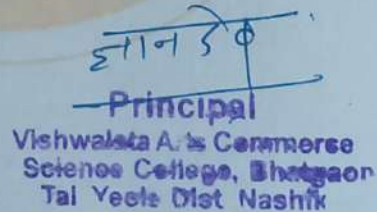 ज्ञानदेव
Principal
Vishwalata A. & Commerce
Science College, Bhatgaon
Tal Yeola Dist Nashik